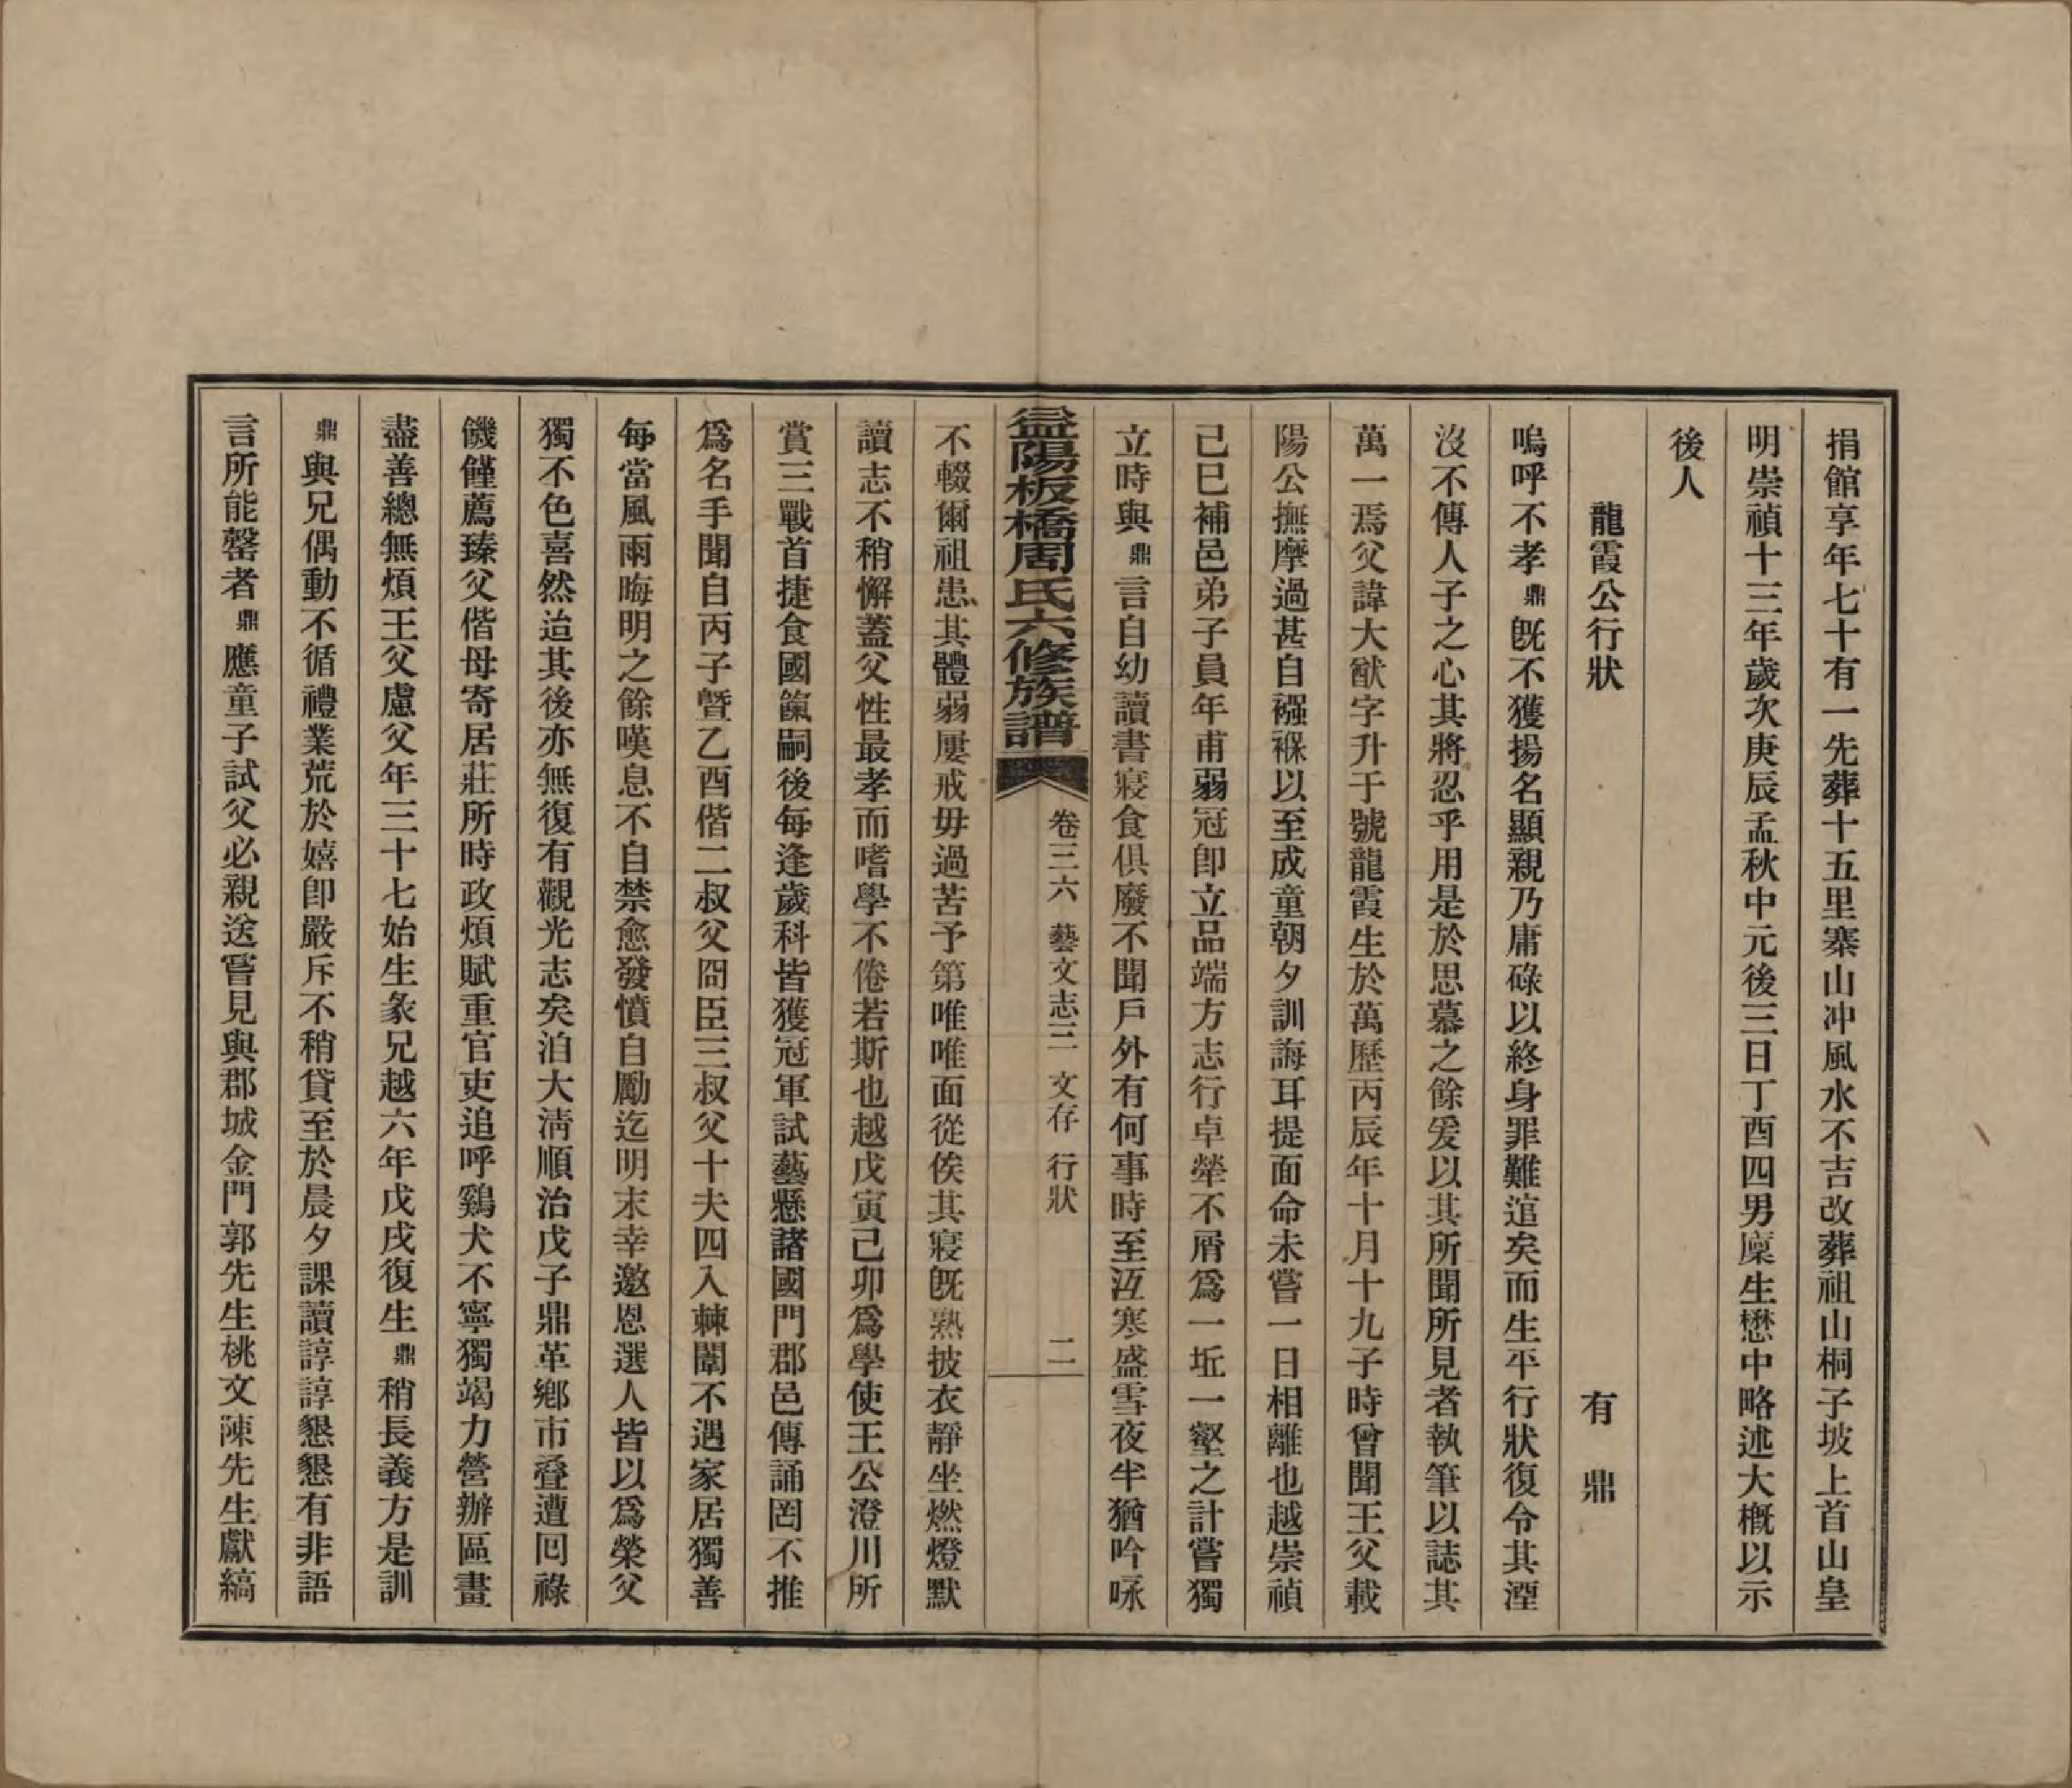 捐館享年七十有一先葬十五里寨山冲風水不吉改葬祖山桐子坡上首山皇
明崇禎十三年歲次庚辰孟秋中元後三日丁酉四男廩生懋中略述大概以示
後人
龍霞公行狀　有鼎
嗚呼不孝鼎旣不獲揚名顯親乃庸碌以終身罪難逭矣而生平行狀復令其湮
沒不傳人子之心其將忍乎用是於思慕之餘爰以其所聞所見者執筆以誌其
萬一焉父諱大猷字升于號龍霞生於萬歷丙辰年十月十九子時曾聞王父載
陽公撫摩過甚自襁褓以至成童朝夕訓誨耳提面命未嘗一日相離也越崇禎
己巳補邑弟子員年甫弱冠卽立品端方志行卓犖不屑爲一坵一壑之計嘗獨
立時與鼎言自幼讀書寢食俱廢不聞戶外有何事時至沍寒盛雪夜半猶吟咏
益陽板橋周氏六修族譜　卷三六　藝文志三　文存　行狀　二
不輟爾祖患其體弱屢戒毋過苦予第唯唯面從俟其寢旣熟披衣靜坐燃燈默
讀志不稍懈蓋父性最孝而嗜學不倦若斯也越戊寅己卯爲學使王公澄川所
賞三戰首捷食國餼嗣後每逢歲科皆獲冠軍試藝懸諸國門郡邑傳誦罔不推
爲名手聞自丙子曁乙酉偕二叔父冏臣三叔父十夫四入棘闈不遇家居獨善
每當風雨晦明之餘嘆息不自禁愈發憤自勵迄明末幸邀恩選人皆以爲榮父
獨不色喜然迨其後亦無復有觀光志矣洎大淸順治戊子鼎革鄕市叠遭囘祿
饑饉薦臻父偕母寄居莊所時政煩賦重官吏追呼鷄犬不寧獨竭力營辦區畫
盡善總無煩王父慮父年三十七始生彖兄越六年戊戌復生鼎稍長義方是訓
鼎與兄偶動不循禮業荒於嬉卽嚴斥不稍貸至於晨夕課讀諄諄懇懇有非語
言所能罄者鼎應童子試父必親送嘗見與郡城金門郭先生桃文陳先生獻縞